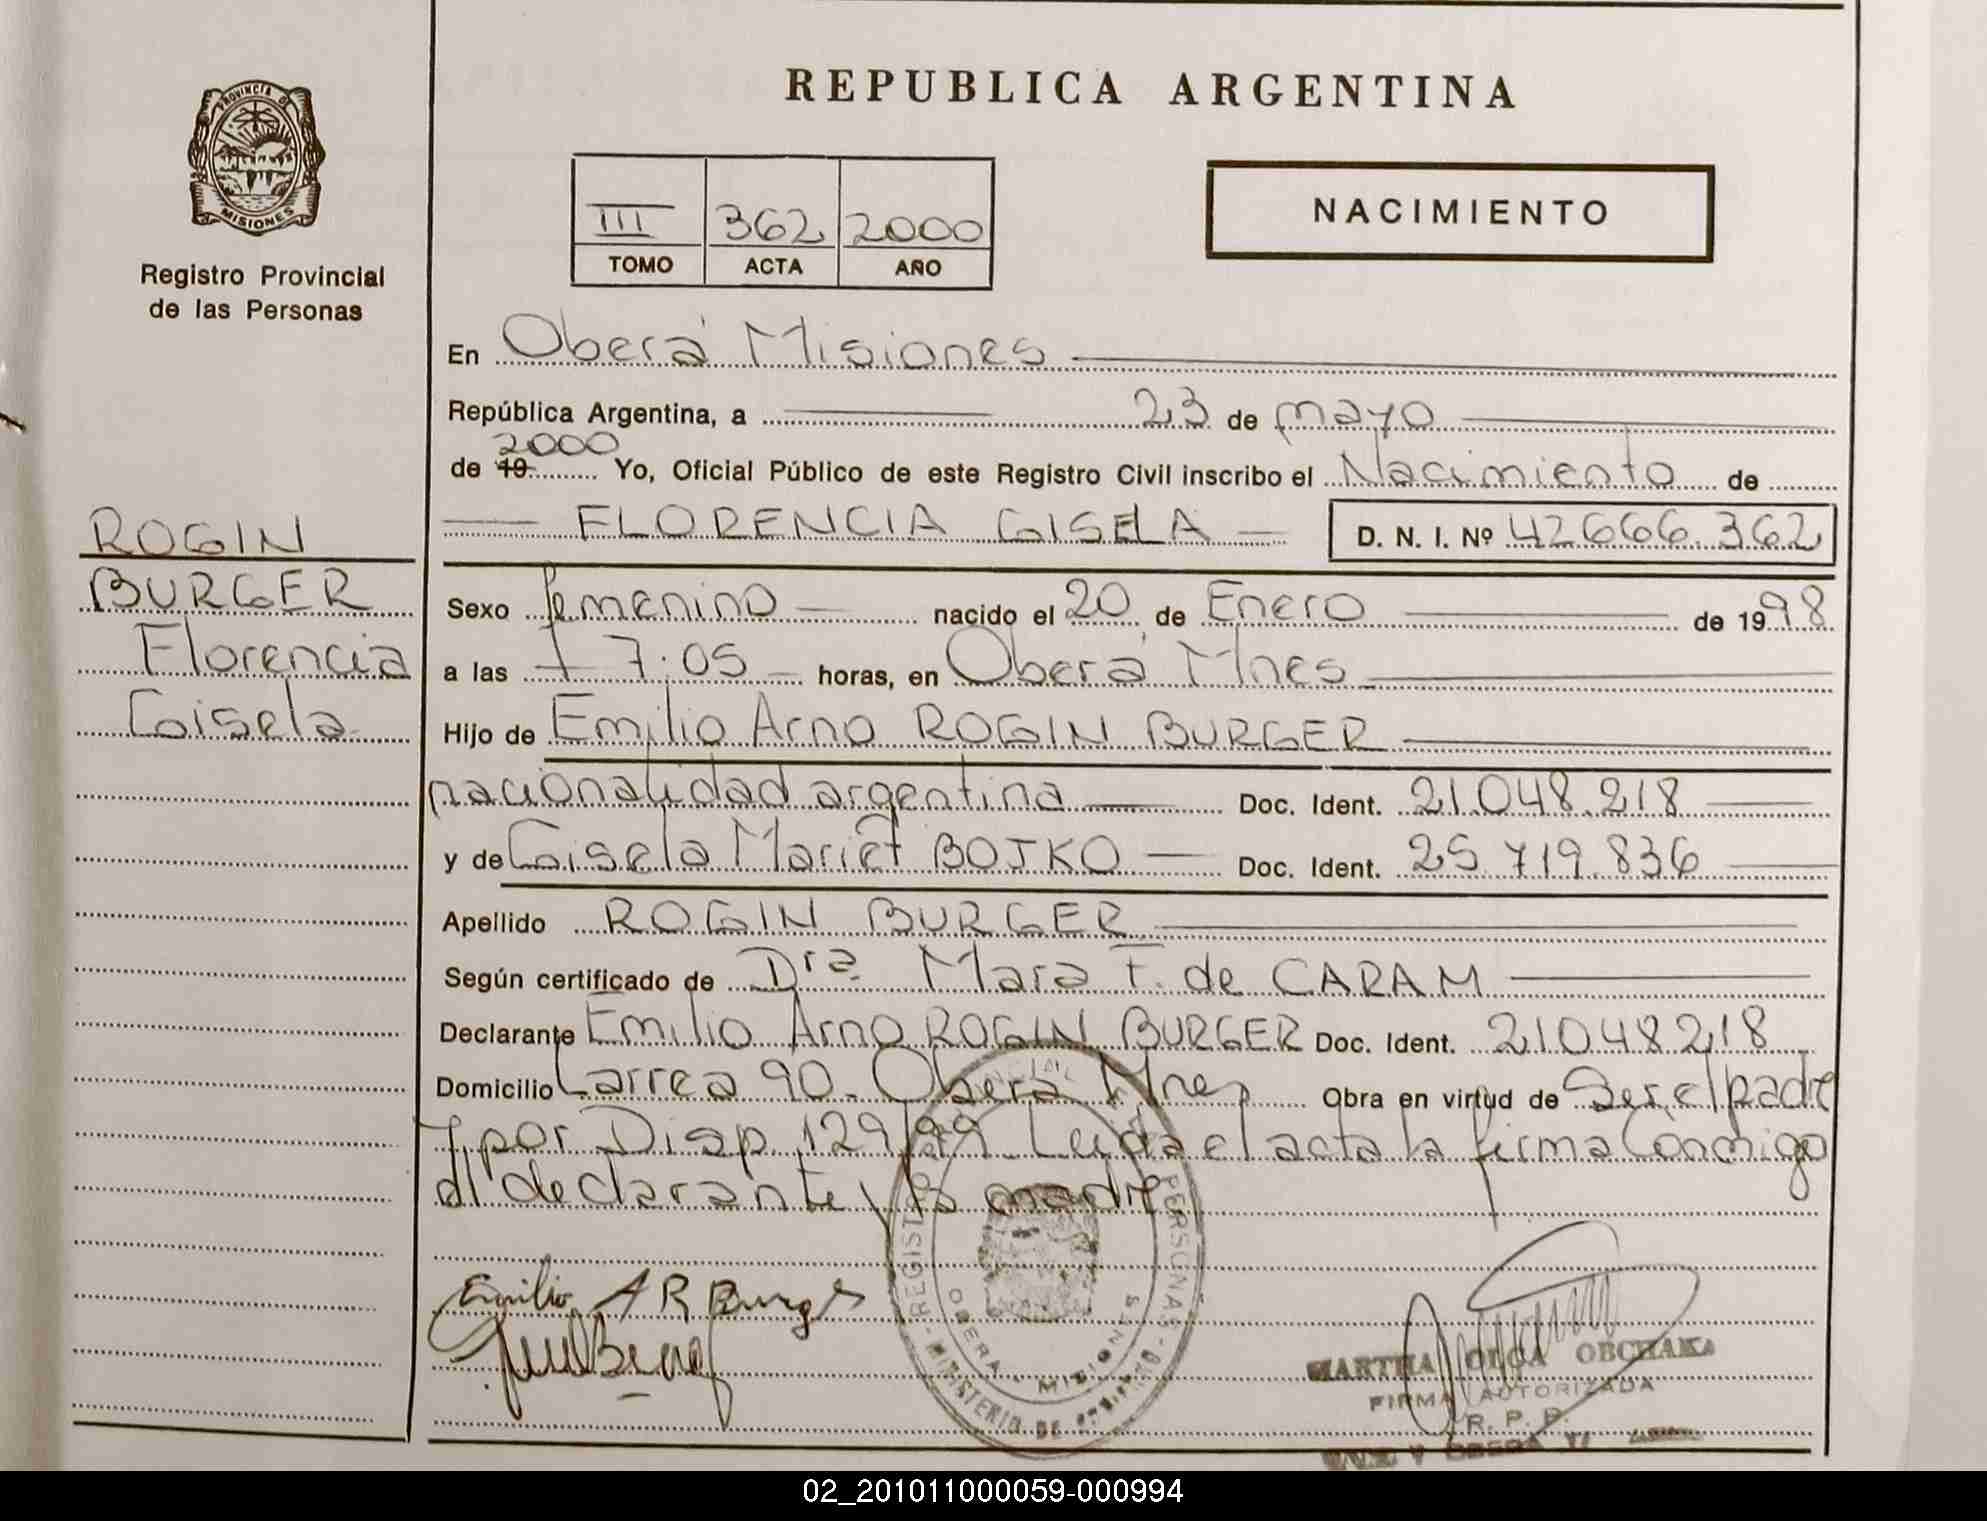 REPUBLICA ARGENTINA
PROVINCIA DE
MISIONES
Registro Provincial
de las Personas
III 362 2000
TOMO ACTA AÑO
NACIMIENTO
En Oberá Misiones
República Argentina, a 23 de mayo
2000
de 19 Yo, Oficial Público de este Registro Civil inscribo el Nacimiento de
FLORENCIA GISELA D. N. I. Nº 42666.362
ROGIN
BURGER
Florencia
Gisela
Sexo femenino nacido el 20 de Enero de 1998
a las 7:05 horas, en Oberá Mnes
Hijo de Emilio Arno ROGIN BURGER
nacionalidad argentina Doc. Ident. 21.048.218
y de Gisela Mariet BOJKO Doc. Ident. 25.719.836
Apellido ROGIN BURGER
Según certificado de Dra. Mara F. de CARAM
Declarante Emilio Arno ROGIN BURGER Doc. Ident. 21048218
Domicilio Larrea 90. Oberá Mnes Obra en virtud de Ser el padre
y por Disp. 129/99 Leida el acta la firma Conmigo
el declarante y la madre
Emilio A R Burger
REGISTRO PROVINCIAL PERSONAS - MINISTERIO DE
OBERA - MISIONES
MARTHA OLGA OBCHAKA
FIRMA AUTORIZADA
R. P. P.
OBERA
02_201011000059-000994